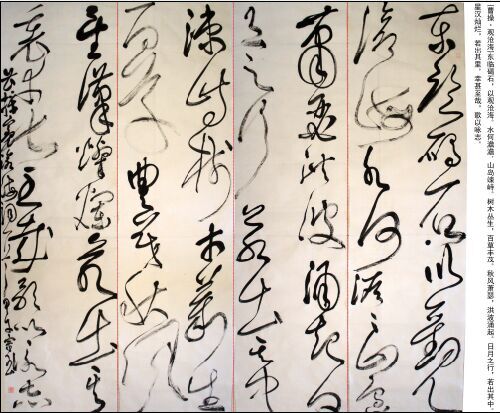 [曹操·观沧海]东临碣石，以观沧海。水何澹澹，山岛竦峙。树木丛生，百草丰茂。秋风萧瑟，洪波涌起。日月之行，若出其中
星汉灿烂，若出其里。幸甚至哉，歌以咏志。
东临碣石以观
沧海水何澹澹山岛
萧瑟洪波涌起日
月之行若出其中
竦峙树木丛生
百草丰茂秋风
星汉灿烂若出其
里幸甚至哉歌以咏志